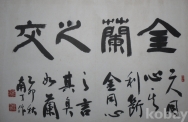 金蘭之交
二人同
心其
利斷
金同心
之言
其臭
如蘭
乙卯秋
kobay